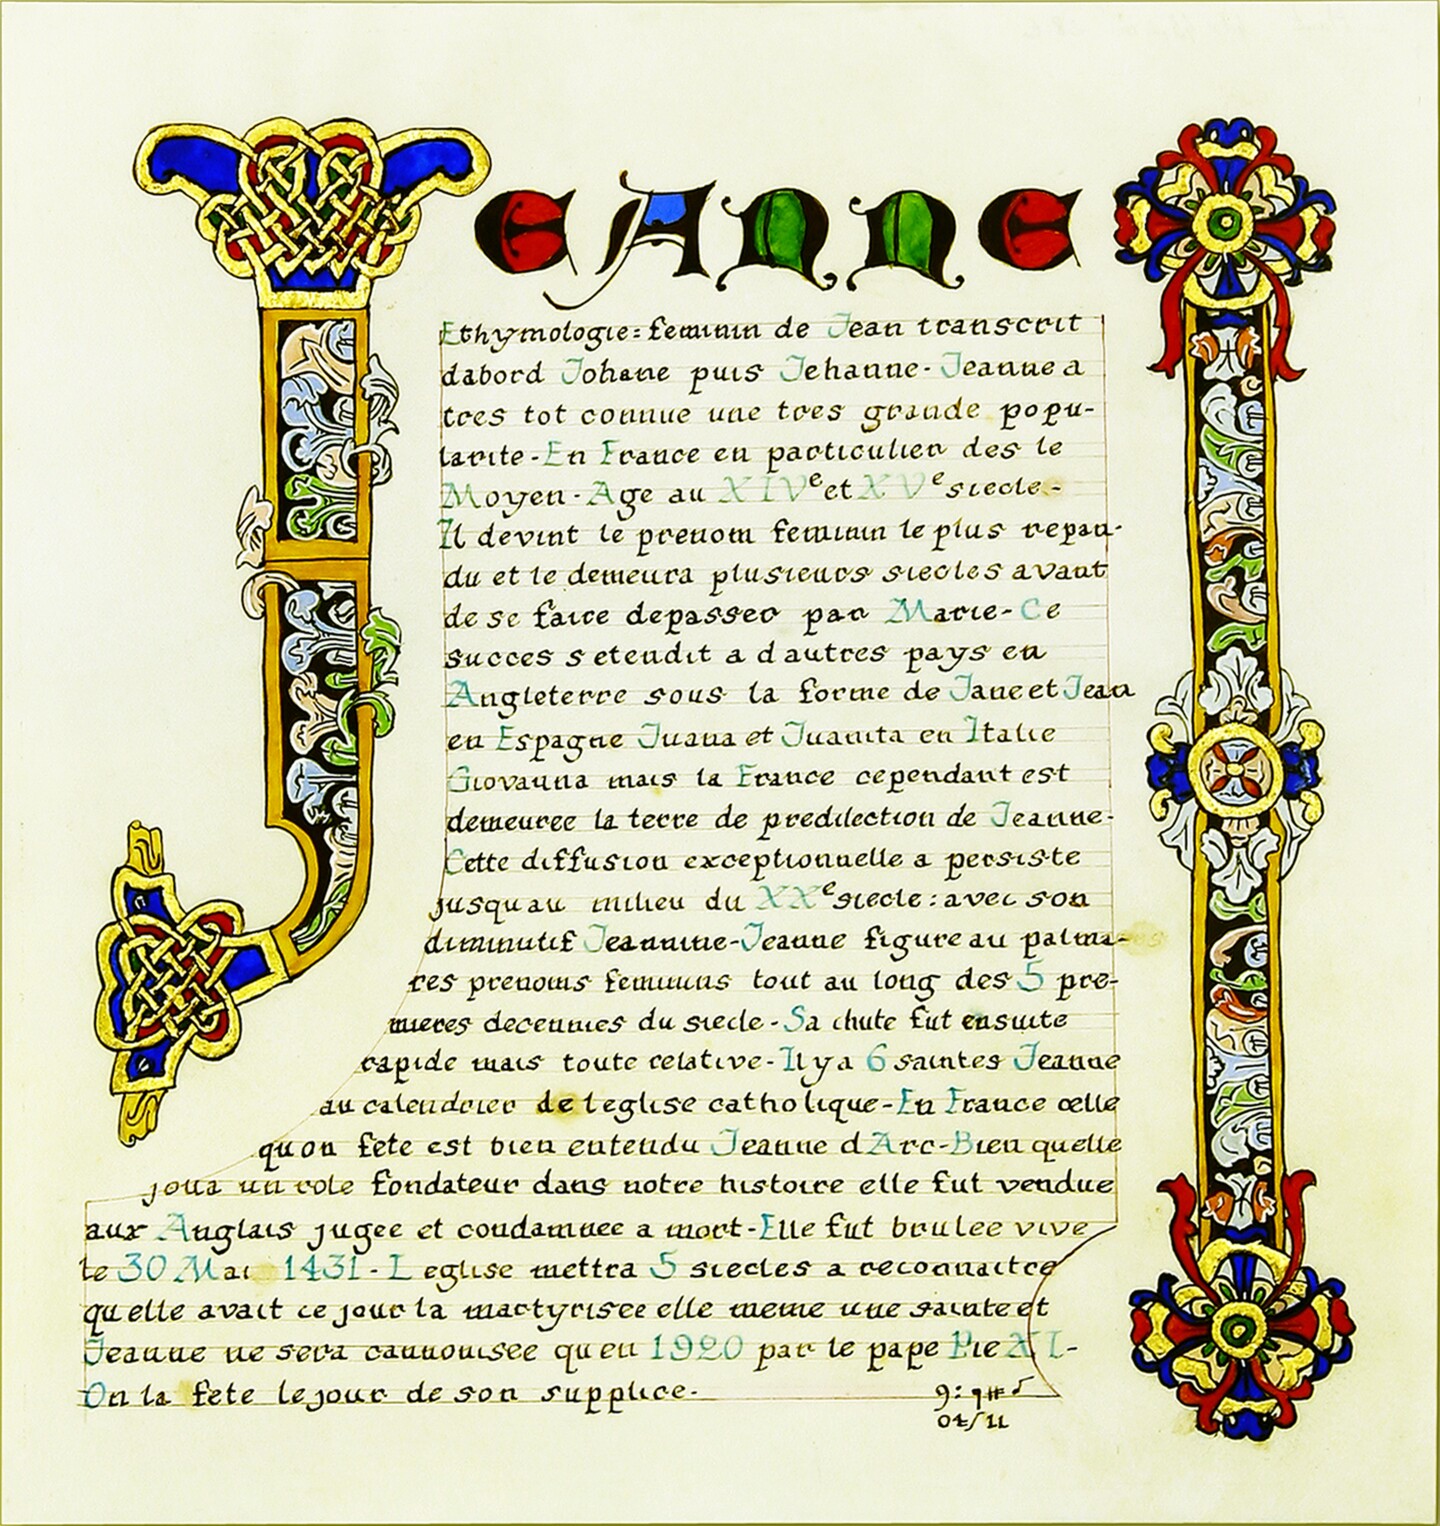 JEANNE
Ethymologie: feminin de Jean transcrit
dabord Johane puis Jehanne-Jeanne a
tres tot connue une tres grande popu-
larite-En France en particulier des le
Moyen-Age au XIVe et XVe siecle-
Il devint le prenom feminin le plus repan-
du et le demeura plusieurs siecles avant
de se faire depasser par Marie-Ce
succes s etendit a d autres pays en
Angleterre sous la forme de Jane et Jean
en Espagne Juana et Juanita en Italie
Giovanna mais la France cependant est
demeuree la terre de predilection de Jeanne-
Cette diffusion exceptionnelle a persiste
jusqu au milieu du XXe siecle: avec son
diminutif Jeannine-Jeanne figure au palma-
res prenoms feminins tout au long des 5 pre-
mieres decennies du siecle-Sa chute fut ensuite
rapide mais toute relative-Il y a 6 saintes Jeanne
au calendrier de l eglise catholique-En France celle
qu on fete est bien entendu Jeanne d Arc-Bien quelle
joua un role fondateur dans notre histoire elle fut vendue
aux Anglais jugee et condamnee a mort-Elle fut brulee vive
le 30 Mai 1431-L eglise mettra 5 siecles a reconnaitre
qu elle avait ce jour la martyrisee elle meme une sainte et
Jeanne ne sera cannonisee qu en 1920 par le pape Pie XI-
On la fete le jour de son supplice-
04/11